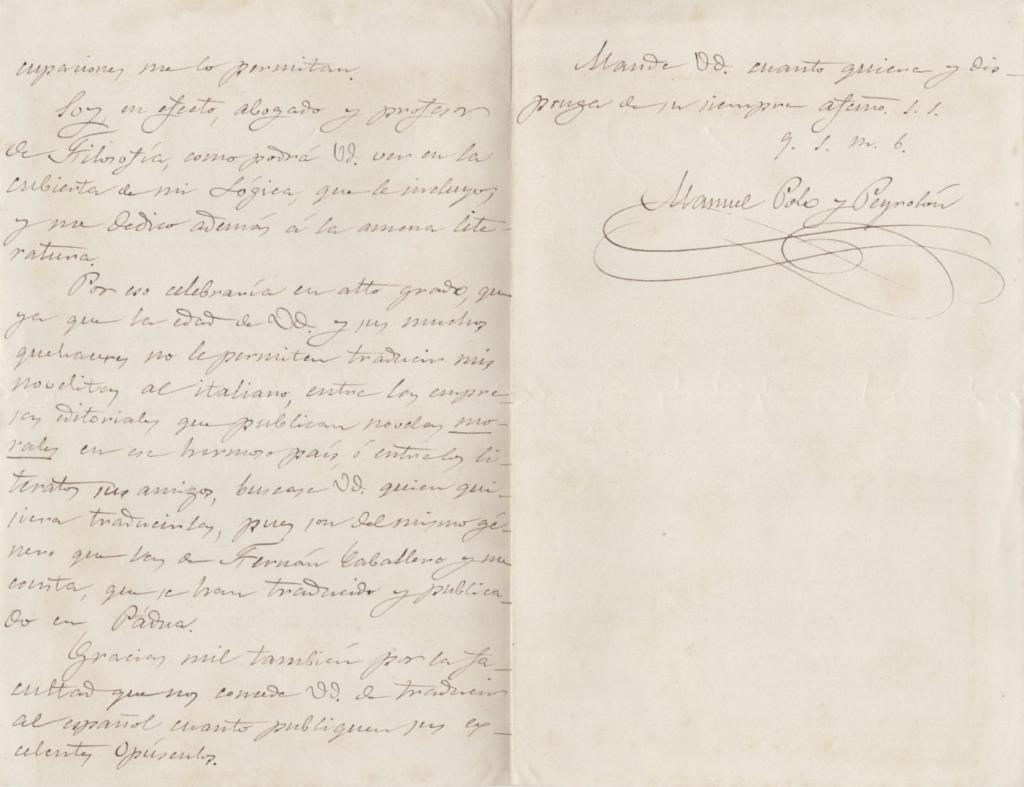 cupaciones me lo permitan.
Soy, en efecto, abogado y profesor
de Filosofía, como podrá Vd. ver en la
cubierta de mi Lógica, que le incluyo;
y me dedico además á la amena lite-
ratura.
Por eso celebraría en alto grado, que
ya que la edad de Vd. y sus muchos
quehaceres no le permiten traducir mis
novelitas al italiano, entre las empre-
sas editoriales que publican novelas mo-
rales en ese hermoso país, ó entre los li-
teratos sus amigos, buscase Vd. quien qui-
siera traducirlas, pues son del mismo gé-
nero que las de Fernán Caballero y me
consta, que se han traducido y publica-
do en Pádua.
Gracias mil también por la fa-
cultad que nos concede Vd. de traducir
al español cuanto publiquen sus ex-
celentes Opúsculos.
Mande Vd. cuanto quiera y dis-
ponga de su siempre afcmo. s. s.
q. s. m. b.
Manuel Polo y Peyrolón